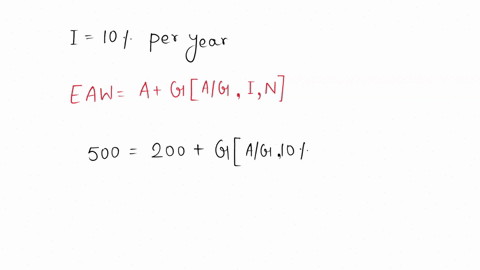 I = 10% per year
EAW = A + G[A/G, I, N]
500 = 200 + G[A/G, 10%